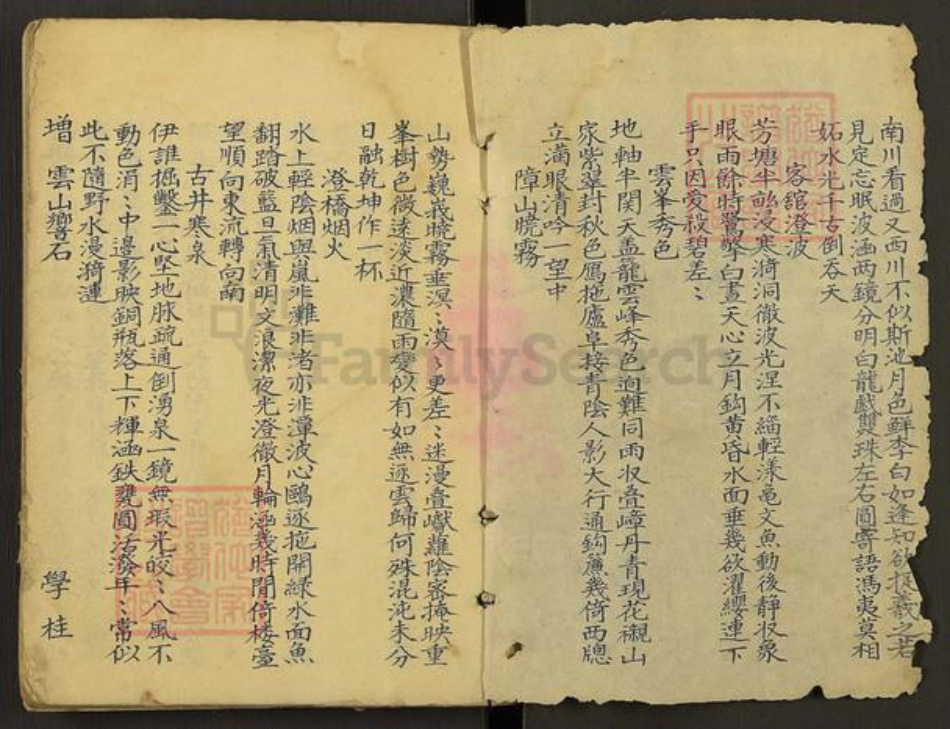 南川看過又西川不似斯池月色鮮李白如逢知欲捉羲之若
見定忘眠波涵两鏡分明白龍戯雙珠左右圓寄語馮夷莫相
妬水光千古倒吞天
客舘澄波
芳塘半畝浸寒漪洞徹波光涅不緇輕漾亀文魚動後静収象
眼雨餘時驚擎白晝天心立月鈎黄昏水面垂幾欲濯纓連下
手只因愛殺碧差〻
雲峯秀色
地軸半関天盖籠雲峰秀色逈難同雨収叠嶂丹青現花襯山
家紫翠封秋色鴈拖廬阜接青陰人影大行通鈎簾幾倚西牕
立満眼清吟一望中
障山暁霧
山勢巍峩暁霧垂溟〻漠〻更差〻迷漫叠巘蘿陰密掩映重
峯樹色微遠淡近濃隨雨變似有如無逐雲歸何殊混沌未分
日融乾坤作一杯
澄橋烟火
水上輕陰烟與嵐非灘非渚亦非潭波心鷗逐拖開緑水面魚
翻踏破藍旦氣清明文浪潔夜光澄徹月輪涵幾時閒倚楼臺
望順向東流轉向南
古井寒泉
伊誰掘鑿一心堅地脉疏通倒湧泉一鏡無瑕光皎〻八風不
動色涓〻中邊影映銅瓶落上下輝涵鉄甕圓活潑年〻常似
此不隨野水漫漪漣
増 雲山響石 學桂
FamilySearch